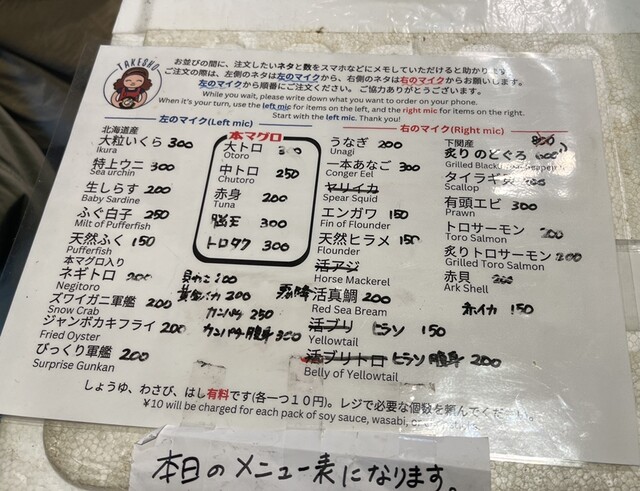 TAKESHO
お並びの間に、注文したいネタと数をスマホなどにメモしていただけると助かります。
ご注文の際は、左側のネタは左のマイクから、右側のネタは右のマイクからお願いします。
左のマイクから順番にご注文ください。ご協力ありがとうございます。
While you wait, please write down what you want to order on your phone.
When it's your turn, use the left mic for items on the left, and the right mic for items on the right.
Start with the left mic. Thank you!
左のマイク(Left mic)
北海道産
大粒いくら 300
Ikura
特上ウニ 300
Sea urchin
生しらす 200
Baby Sardine
ふぐ白子 250
Milt of Pufferfish
天然ふく 150
Pufferfish
本マグロ入り
ネギトロ 200
Negitoro
ズワイガニ軍艦 200
Snow Crab
ジャンボカキフライ 200
Fried Oyster
びっくり軍艦 200
Surprise Gunkan
本マグロ
大トロ
Otoro
中トロ 250
Chutoro
赤身 200
Tuna
脳天 300
トロタク 300
200
カンパチ 250
カンパチ腹身 300
右のマイク(Right mic)
うなぎ 200
Unagi
一本あなご 300
Conger Eel
ヤリイカ
Spear Squid
エンガワ 150
Fin of Flounder
天然ヒラメ 150
Flounder
活アジ
Horse Mackerel
活真鯛 200
Red Sea Bream
活ブリ ヒラソ 150
Yellowtail
活ブリトロ ヒラソ腹身 200
Belly of Yellowtail
下関産
炙りのどぐろ
Grilled
タイラギ貝
Scallop
有頭エビ 300
Prawn
トロサーモン 200
Toro Salmon
炙りトロサーモン 200
Grilled Toro Salmon
赤貝
Ark Shell
赤イカ 150
しょうゆ、わさび、はし有料です(各一つ10円)。レジで必要な個数を頼んでください。
¥10 will be charged for each pack of soy sauce, wasabi,
本日のメニュー表になります。